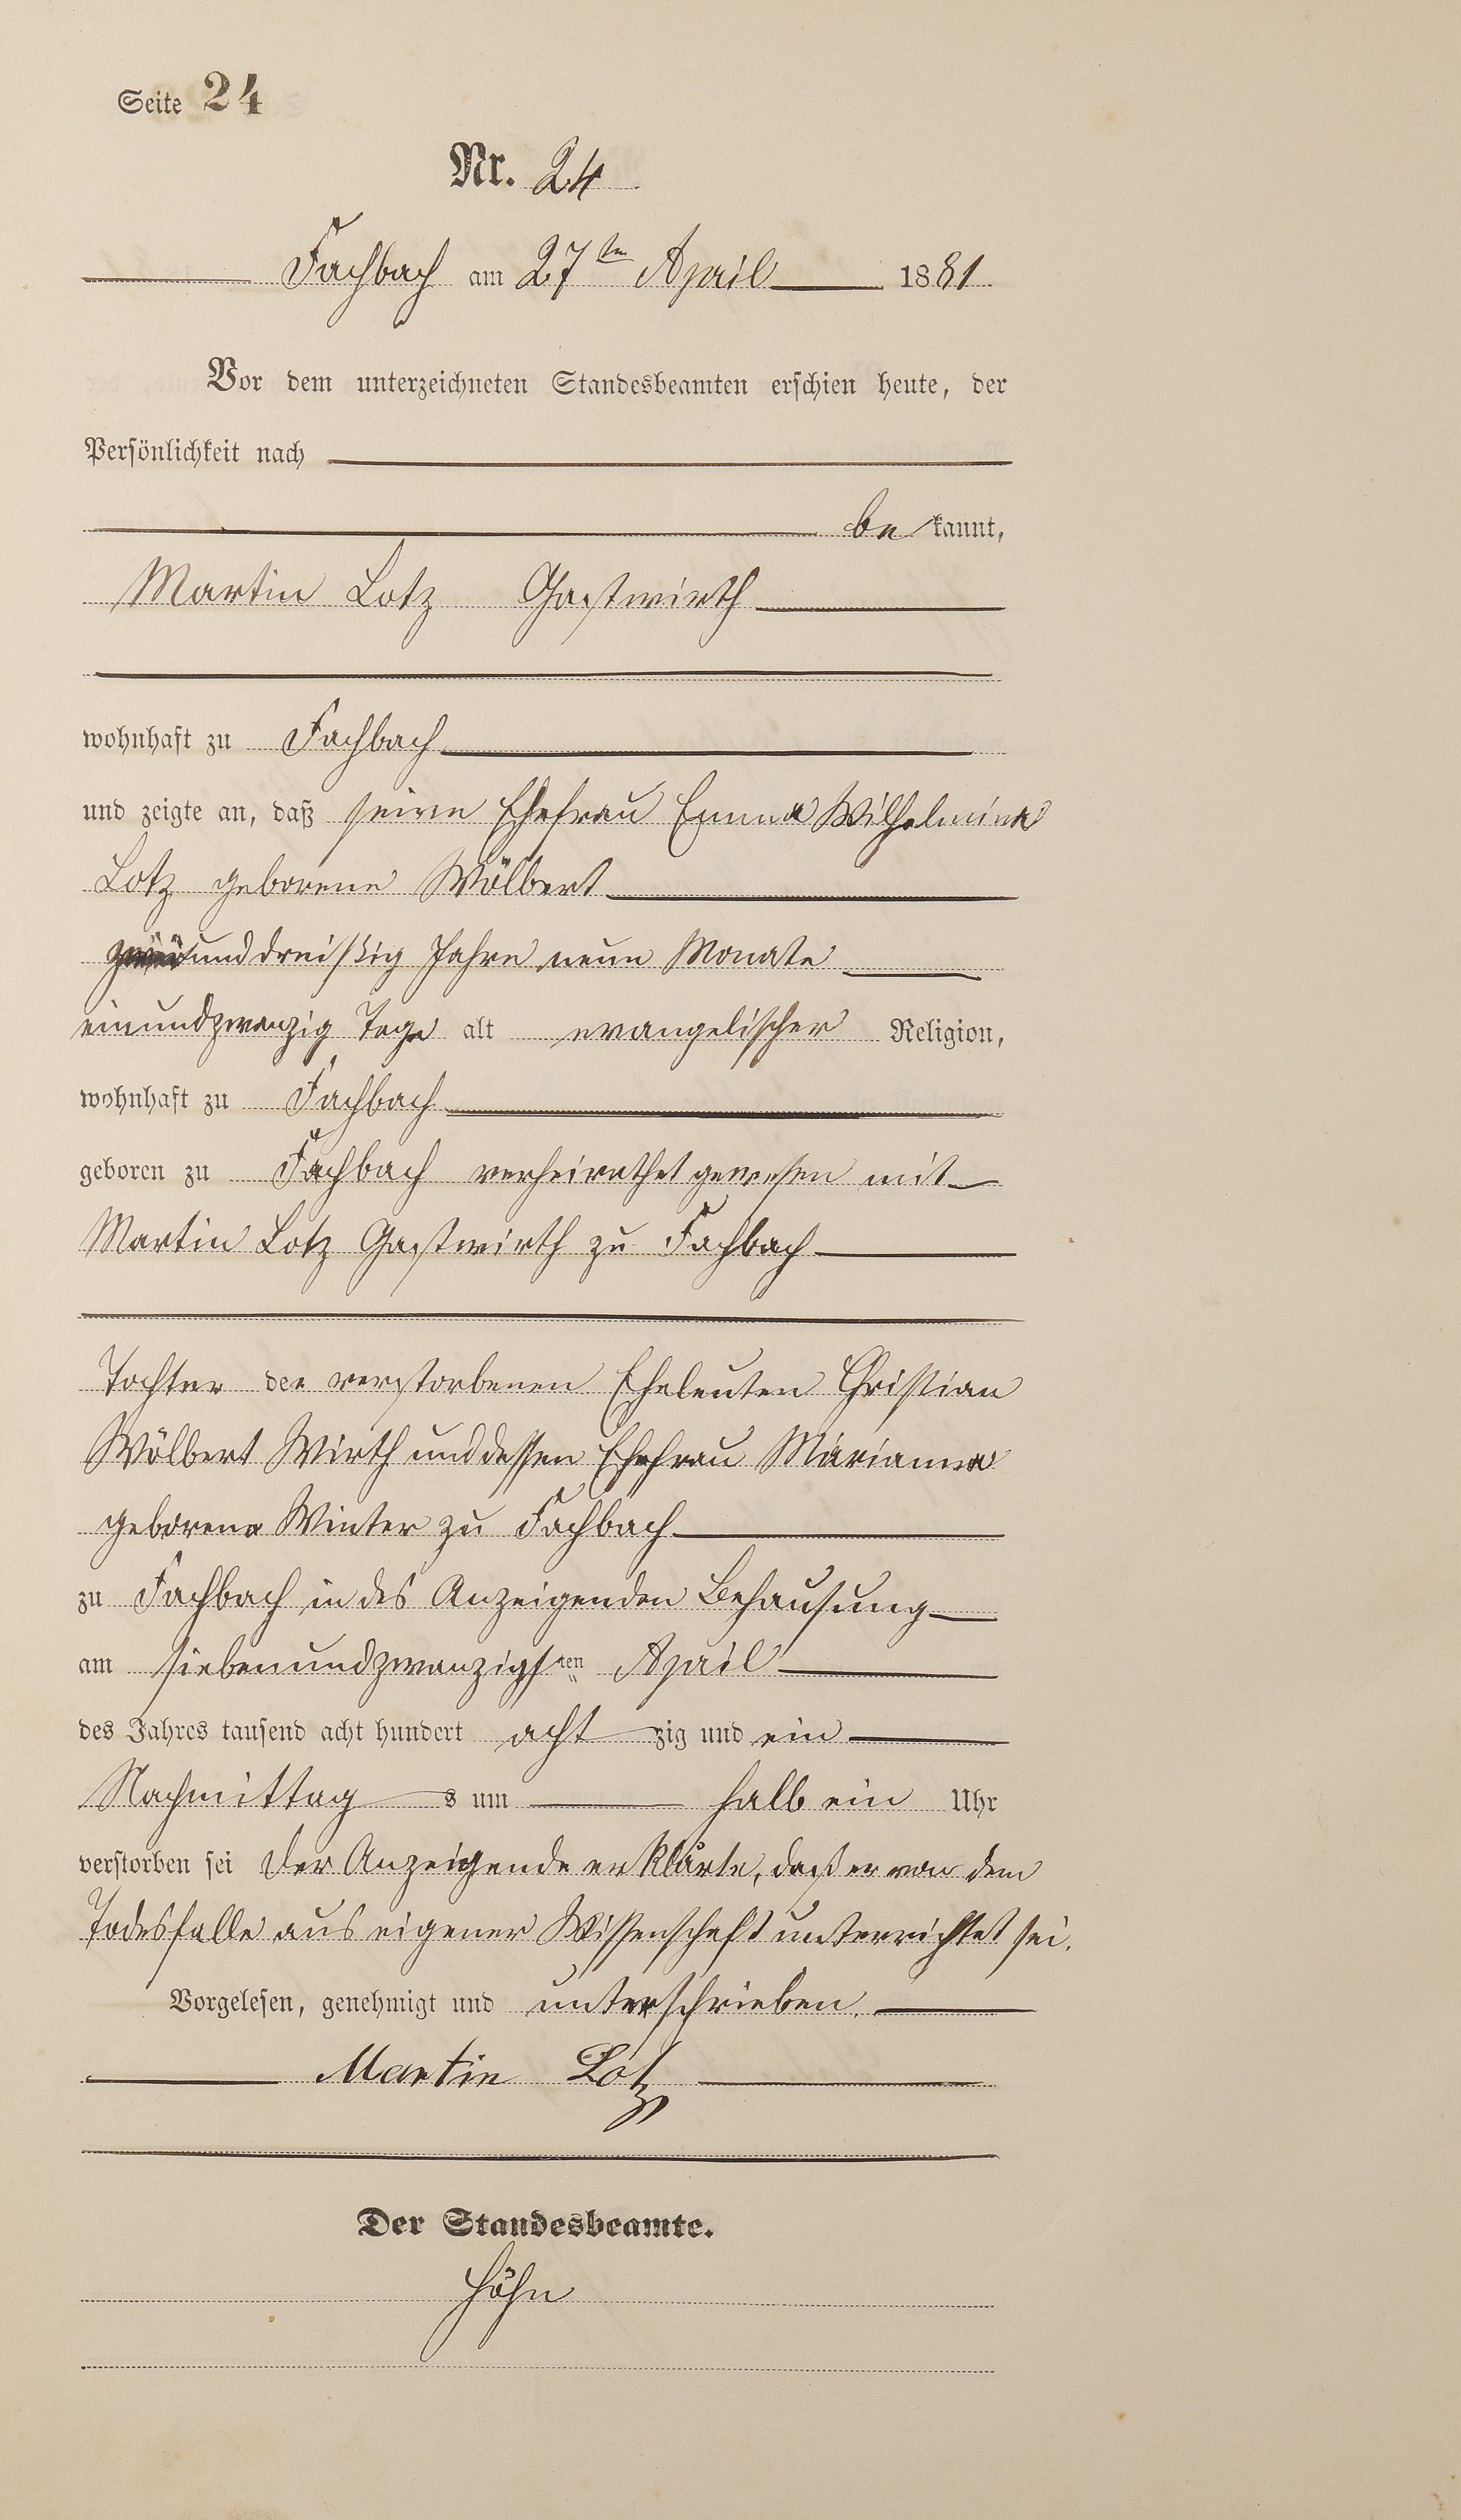 Seite 24
Nr. 24
Fachbach am 27ten April 1881.
Vor dem unterzeichneten Standesbeamten erschien heute, der
Persönlichkeit nach
bekannt,
Martin Lotz Gastwirth
wohnhaft zu Fachbach
und zeigte an, daß seine Ehefrau Emma Wilhelmina
Lotz geborene Wölbert
unddreißig Jahre neun Monate
einundzwanzig Tage alt evangelischer Religion,
wohnhaft zu Fachbach
geboren zu Fachbach verheirathet gewesen mit
Martin Lotz Gastwirth zu Fachbach
Tochter der verstorbenen Eheleuten Christian
Wölbert Wirth und dessen Ehefrau Marianna
geborene Winter zu Fachbach
zu Fachbach in des Anzeigenden Behausung
am siebenundzwanzigsten April
des Jahres tausend acht hundert achtzig und ein
Nachmittags um halb ein Uhr
verstorben sei Der Anzeigende erklärte, daß er von dem
Todesfalle aus eigener Wissenschaft unterrichtet sei.
Vorgelesen, genehmigt und unterschrieben.
Martin Lotz
Der Standesbeamte.
Höhn